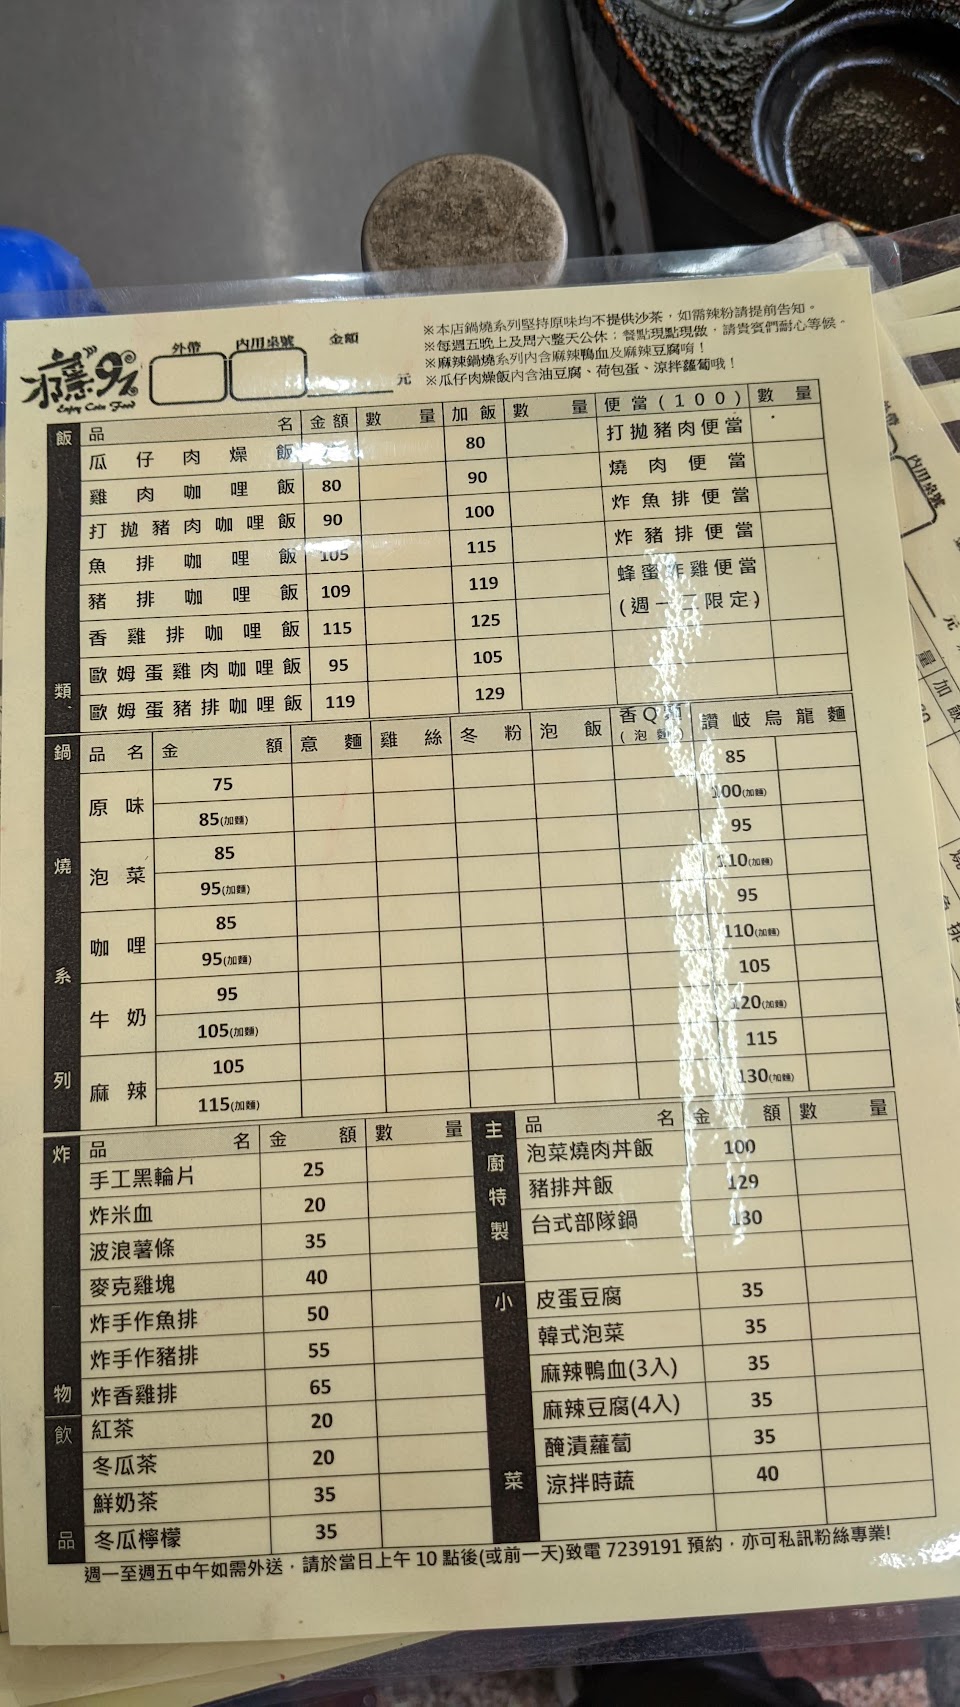 ※本店鍋燒系列堅持原味均不提供沙茶，如需辣粉請提前告知。
※每週五晚上及周六整天公休；餐點現點現做，請貴賓們耐心等候。
※麻辣鍋燒系列內含麻辣鴨血及麻辣豆腐唷！
※瓜仔肉燥飯內含油豆腐、荷包蛋、涼拌蘿蔔哦！
外帶 內用桌號 金額 元
Enjoy Coin Food
飯類
品名 金額 數量 加飯 數量 便當(100) 數量
瓜仔肉燥飯 80 打拋豬肉便當
雞肉咖哩飯 80 90 燒肉便當
打拋豬肉咖哩飯 90 100 炸魚排便當
魚排咖哩飯 105 115 炸豬排便當
豬排咖哩飯 109 119 蜂蜜炸雞便當
香雞排咖哩飯 115 125 (週一二限定)
歐姆蛋雞肉咖哩飯 95 105
歐姆蛋豬排咖哩飯 119 129
鍋燒系列
品名 金額 意麵 雞絲 冬粉 泡飯 香Q麵(泡麵) 讚岐烏龍麵
原味 75 85
85(加麵) 100(加麵)
泡菜 85 95
95(加麵) 110(加麵)
咖哩 85 95
95(加麵) 110(加麵)
牛奶 95 105
105(加麵) 120(加麵)
麻辣 105 115
115(加麵) 130(加麵)
炸物
品名 金額 數量
手工黑輪片 25
炸米血 20
波浪薯條 35
麥克雞塊 40
炸手作魚排 50
炸手作豬排 55
炸香雞排 65
飲品
紅茶 20
冬瓜茶 20
鮮奶茶 35
冬瓜檸檬 35
主廚特製
品名 金額 數量
泡菜燒肉丼飯 100
豬排丼飯 129
台式部隊鍋 130
小菜
皮蛋豆腐 35
韓式泡菜 35
麻辣鴨血(3入) 35
麻辣豆腐(4入) 35
醃漬蘿蔔 35
涼拌時蔬 40
週一至週五中午如需外送，請於當日上午 10 點後(或前一天)致電 7239191 預約，亦可私訊粉絲專業!
內用桌號
元
量 加飯